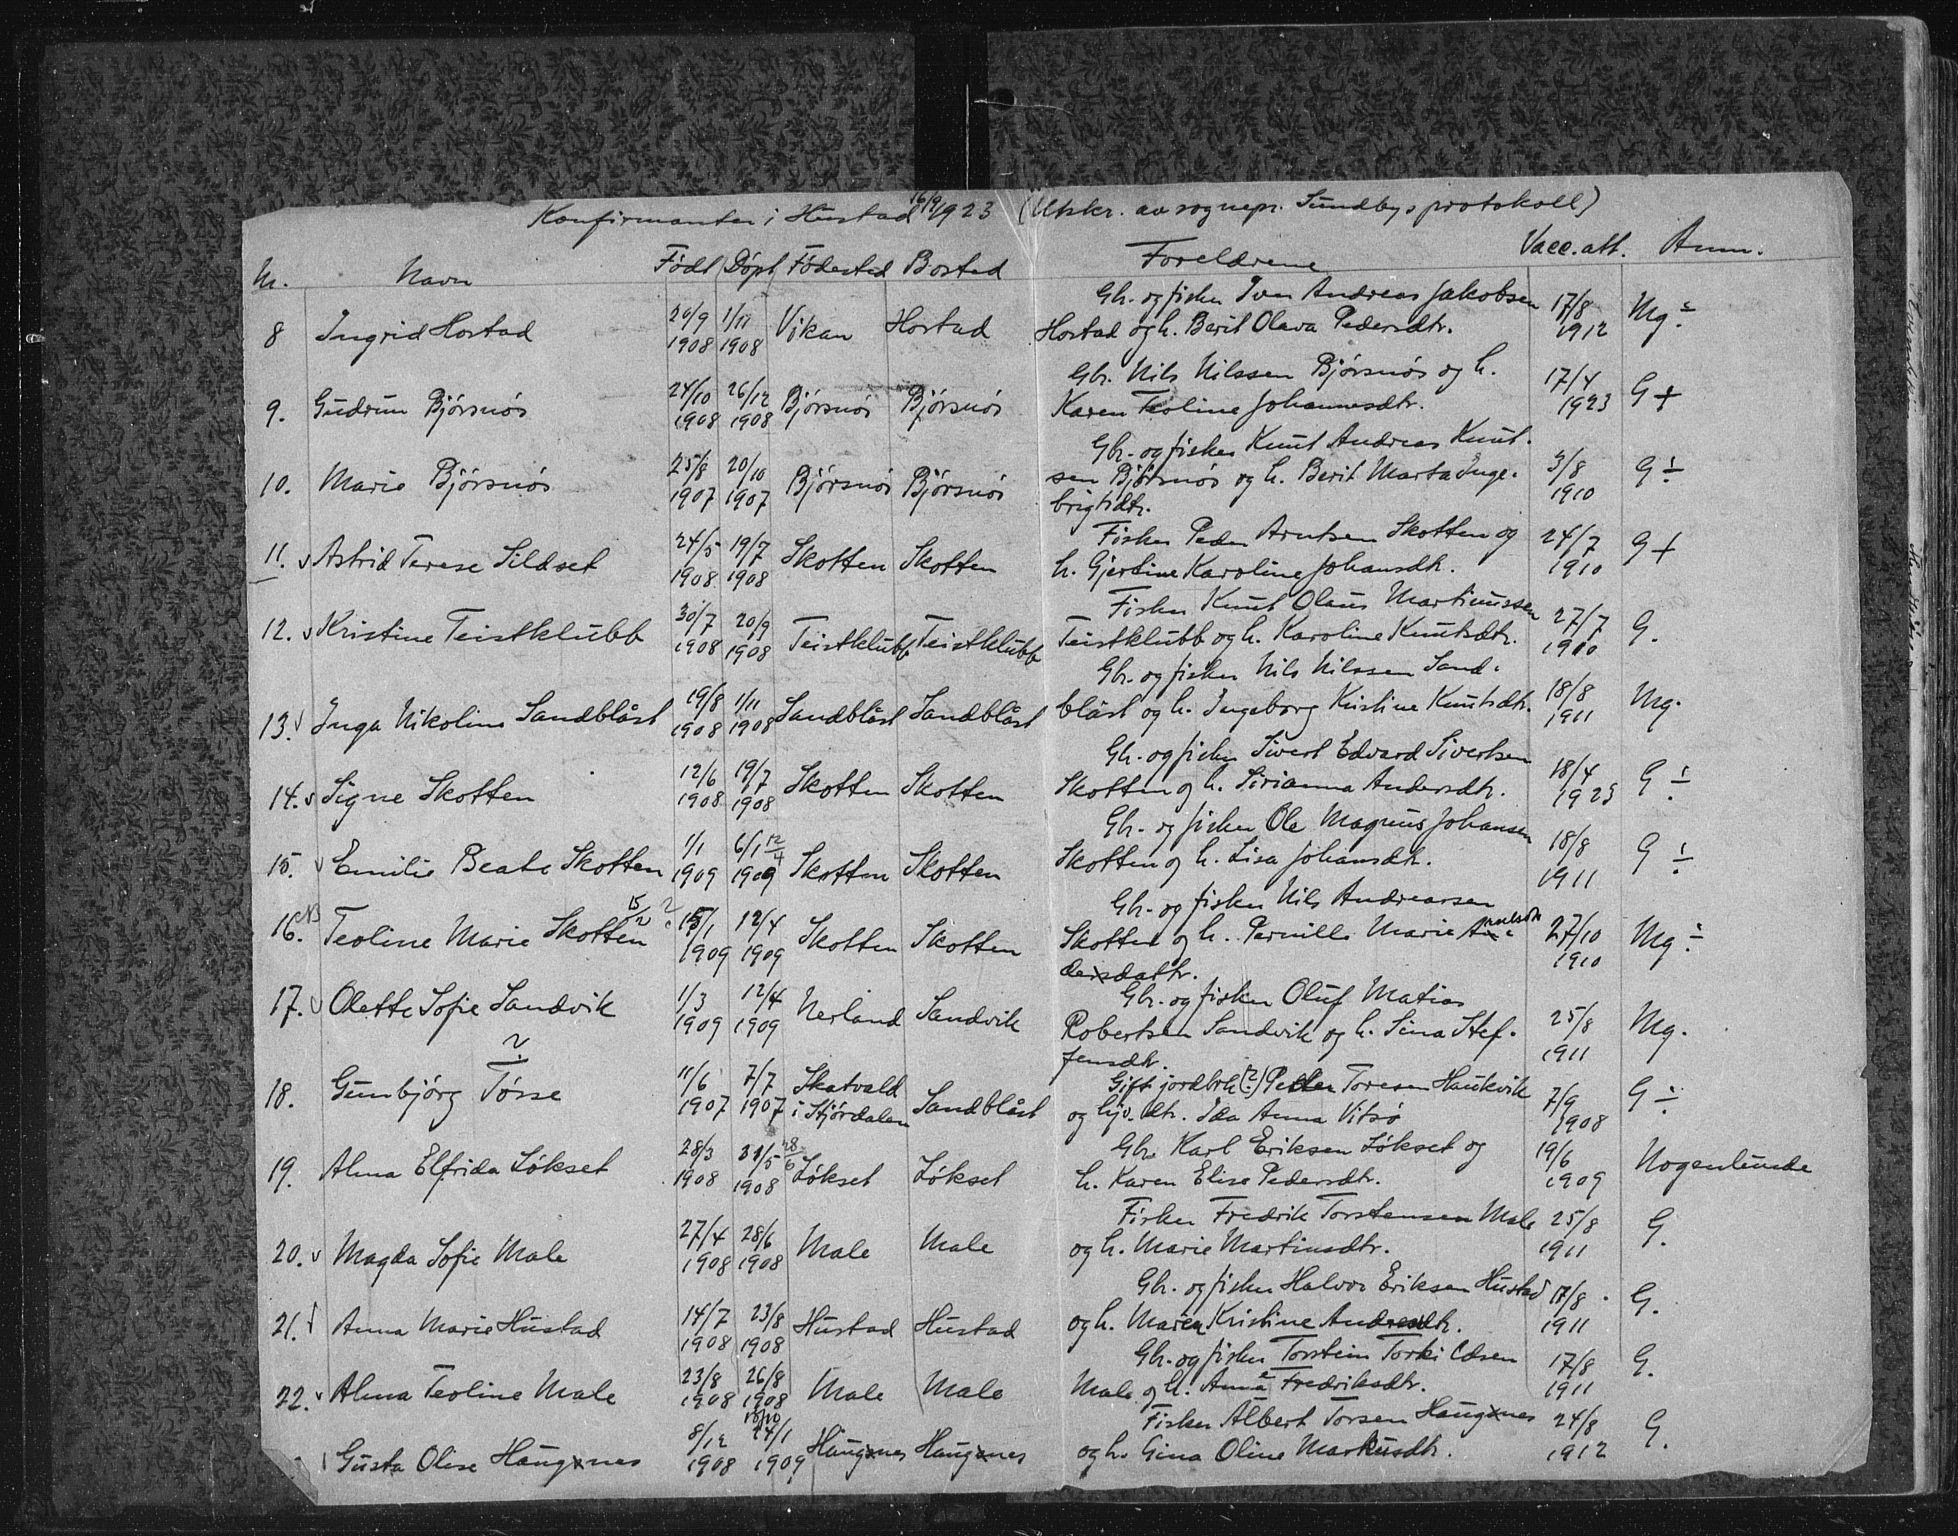 Konfirmanter i Hustad 16/9 1923 (Utskr. av sognepr. Sundbys protokoll)
Nr. Navn Født Døpt Fødested Bosted Forældrene Vacc.att. Anm.
Gbr. og fisker Iver Andreas Jakobsen
8 Ingrid Hostad 20/9 1908 1/11 1908 Vikan Hostad Hostad og h. Berit Olava Pedersdtr. 17/8 1912 Mg ÷
Gbr. Nils Nilssen Bjørsnøs og h.
9. Gudrun Bjørsnøs 24/10 1908 26/12 1908 Bjørsnøs Bjørsnøs Karen Teoline Johannesdtr. 17/4 1923 G +
Gbr. og fisker Knut Andreas Knut-
10. Marie Bjørsnøs 25/8 1907 20/10 1907 Bjørsnøs Bjørsnøs sen Bjørsnøs og h. Berit Marta Inge- 3/8 1910 G ÷
brigtsdtr.
Fisker Peder Arntsen Skotten og
11. Astrid Terese Sildset 24/5 1908 19/7 1908 Skotten Skotten h. Gjertine Karoline Johansdtr. 24/7 1910 G +
Fisker Knut Olaus Martinussen
12. Kristine Teistklubb 30/7 1908 20/9 1908 Teistklubb Teistklubb Teistklubb og h. Karoline Knutsdtr. 27/7 1910 G.
Gbr. og fisker Nils Nilssen Sand-
13. Inga Nikoline Sandblåst 19/8 1908 1/11 1908 Sandblåst Sandblåst blåst og h. Ingeborg Kristine Knutsdtr. 18/8 1911 Mg.
Gbr. og fisker Sivert Edvard Sivertsen
14. Signe Skotten 12/6 1908 19/7 1908 Skotten Skotten Skotten og h. Sirianna Andersdtr. 18/4 1923 G ÷
Gbr. og fisker Ole Magnus Johansen
15. Emilie Beate Skotten 1/1 1909 6/1 12/4 1909 Skotten Skotten Skotten og h. Lisa Johansdtr. 18/8 1911 G ÷
Gbr. og fisker Nils Andreassen
16. NB Teoline Marie Skotten 15/2 ? 15/1 1909 12/4 1909 Skotten Skotten Skotten og h. Pernille Marie An- 27/10 1910 Mg ÷
dersdattr.
Gbr. og fisker Oluf Matias
17. Olette Sofie Sandvik 1/3 1909 12/4 1909 Nerland Sandvik Robertsen Sandvik og h. Sina Stef- 25/8 1911 Mg.
fensdtr.
? Gift jordbrk (?) Peder Toresen Haukvik
18. Gunbjørg Tørse 11/6 1907 7/7 1907 Skatvald i Stjørdalen Sandblåst og Gjv. dtr. Ida Anna Vitsø 7/9 1908 G ÷
Gbr. Karl Eriksen Løkset og
19. Alma Elfrida Løkset 28/3 1908 31/5 28/6 1908 Løkset Løkset h. Karen Elise Pedersdtr. 19/6 1909 Nogenlunde
Fisker Fredrik Torstensen Male
20. Magda Sofie Male 27/4 1908 28/6 1908 Male Male og h. Marie Martinsdtr. 25/8 1911 G.
Gbr. og fisker Halvor Eriksen Hustad
21. Anna Marie Hustad 14/7 1908 23/8 1908 Hustad Hustad og h. Maren Kristine Andreasdtr. 17/8 1911 G.
Gbr. og fisker Torstein Torkildsen
22. Alma Teoline Male 23/8 1908 26/8 1908 Male Male Male og h. Anna Fredriksdtr. 17/8 1911 G.
Fisker Albert Torsen Haugnes
Gusta Oline Haugnes 8/12 1908 24/1 1909 Haugnes Haugnes og h. Gina Oline Markusdtr. 24/8 1912 G.